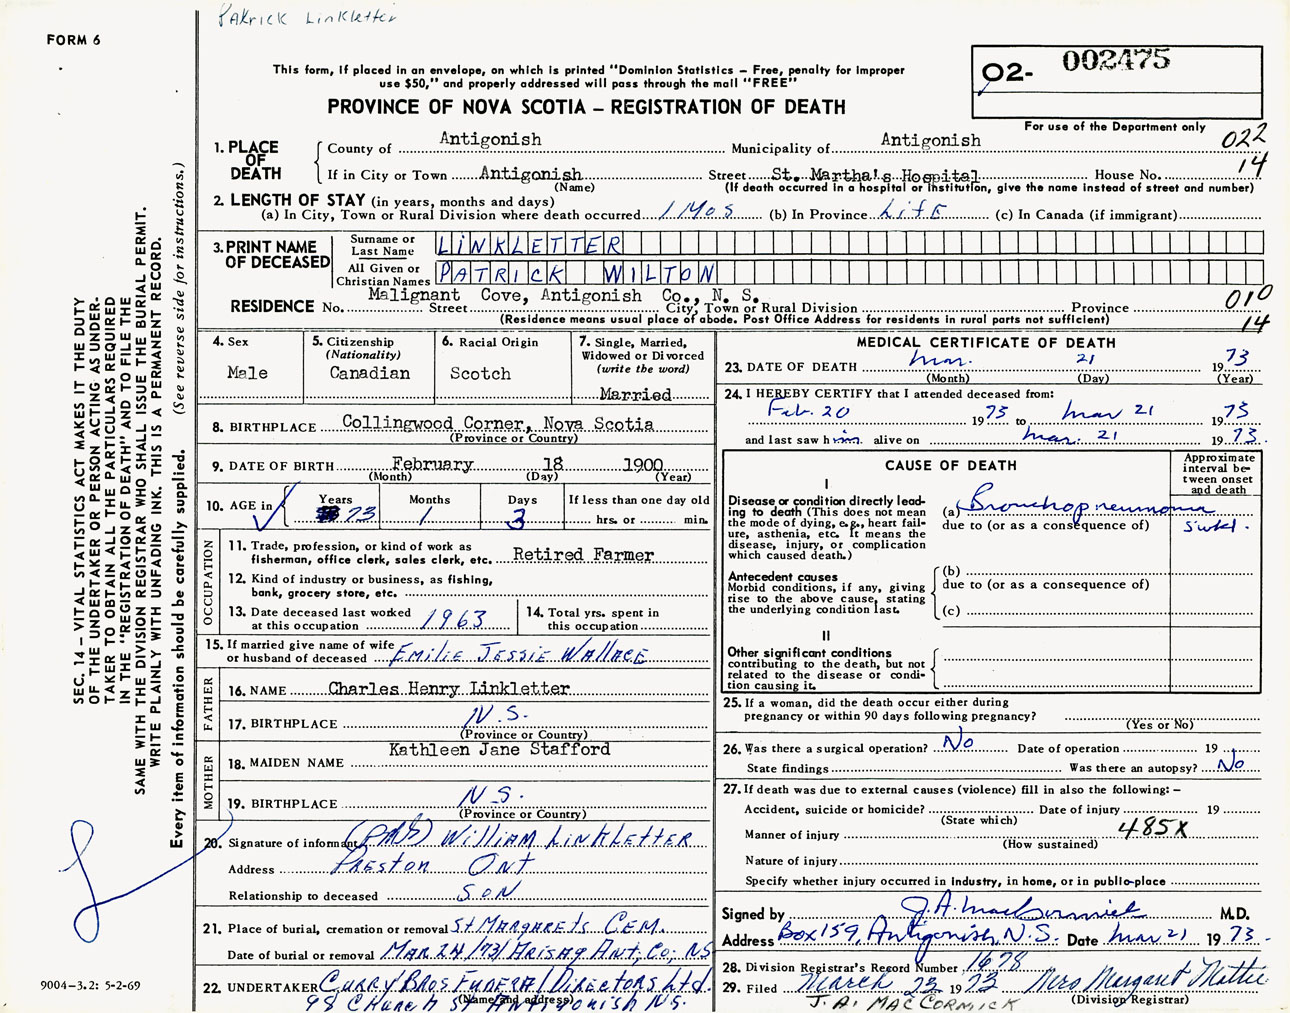 Patrick Linkletter
FORM 6
This form, if placed in an envelope, on which is printed "Dominion Statistics – Free, penalty for improper
use $50," and properly addressed will pass through the mail "FREE"
PROVINCE OF NOVA SCOTIA – REGISTRATION OF DEATH
O2- 002475
For use of the Department only
022
14
1. PLACE OF DEATH
County of Antigonish Municipality of Antigonish
If in City or Town Antigonish Street St. Martha's Hospital House No.
(Name) (If death occurred in a hospital or institution, give the name instead of street and number)
2. LENGTH OF STAY (in years, months and days)
(a) In City, Town or Rural Division where death occurred 1 Mos (b) In Province Life (c) In Canada (if immigrant)
3. PRINT NAME OF DECEASED
Surname or Last Name LINKLETTER
All Given or Christian Names PATRICK WILTON
RESIDENCE No. Malignant Cove, Antigonish Co., N. S. Street City, Town or Rural Division Province 010
(Residence means usual place of abode. Post Office Address for residents in rural parts not sufficient) 14
4. Sex Male
5. Citizenship (Nationality) Canadian
6. Racial Origin Scotch
7. Single, Married, Widowed or Divorced (write the word) Married
8. BIRTHPLACE Collingwood Corner, Nova Scotia
(Province or Country)
9. DATE OF BIRTH February 18 1900
(Month) (Day) (Year)
10. AGE in Years 73 Months 1 Days 3 If less than one day old hrs. or min.
OCCUPATION
11. Trade, profession, or kind of work as fisherman, office clerk, sales clerk, etc. Retired Farmer
12. Kind of industry or business, as fishing, bank, grocery store, etc.
13. Date deceased last worked at this occupation 1963
14. Total yrs. spent in this occupation
15. If married give name of wife or husband of deceased Emilie Jessie Wallace
FATHER
16. NAME Charles Henry Linkletter
17. BIRTHPLACE N.S.
(Province or Country)
MOTHER
18. MAIDEN NAME Kathleen Jane Stafford
19. BIRTHPLACE N.S.
(Province or Country)
20. Signature of informant William Linkletter
Address Preston Ont
Relationship to deceased Son
21. Place of burial, cremation or removal St Margarets Cem.
Date of burial or removal Mar 24/73/ Arisaig Ant. Co, NS
22. UNDERTAKER Curry Bros Funeral Directors Ltd.
98 Church St Antigonish N.S.
(Name and address)
MEDICAL CERTIFICATE OF DEATH
23. DATE OF DEATH Mar. 21 1973
(Month) (Day) (Year)
24. I HEREBY CERTIFY that I attended deceased from:
Feb. 20 1973 to Mar 21 1973
and last saw him alive on Mar. 21 1973.
CAUSE OF DEATH
Approximate interval between onset and death
I
Disease or condition directly leading to death (This does not mean the mode of dying, e.g., heart failure, asthenia, etc. It means the disease, injury, or complication which caused death.)
(a) Bronchopneumonia
due to (or as a consequence of)
Antecedent causes
Morbid conditions, if any, giving rise to the above cause, stating the underlying condition last.
(b)
due to (or as a consequence of)
(c)
II
Other significant conditions contributing to the death, but not related to the disease or condition causing it.
25. If a woman, did the death occur either during pregnancy or within 90 days following pregnancy?
(Yes or No)
26. Was there a surgical operation? No Date of operation 19
State findings Was there an autopsy? No
27. If death was due to external causes (violence) fill in also the following: –
Accident, suicide or homicide? Date of injury 19
(State which)
Manner of injury 485X
(How sustained)
Nature of injury
Specify whether injury occurred in industry, in home, or in public-place
Signed by J.A. MacCormick M.D.
Address Box 159, Antigonish, N.S. Date Mar 21 1973.
28. Division Registrar's Record Number 1678
29. Filed March 22 1973 Mrs Margaret Mattie
(Division Registrar)
J. A. MacCormick
SEC. 14 – VITAL STATISTICS ACT MAKES IT THE DUTY
OF THE UNDERTAKER OR PERSON ACTING AS UNDERTAKER
TO OBTAIN ALL THE PARTICULARS REQUIRED
IN THE "REGISTRATION OF DEATH" AND TO FILE THE
SAME WITH THE DIVISION REGISTRAR WHO SHALL ISSUE THE BURIAL PERMIT.
WRITE PLAINLY WITH UNFADING INK. THIS IS A PERMANENT RECORD.
Every item of information should be carefully supplied. (See reverse side for instructions.)
9004-3.2: 5-2-69